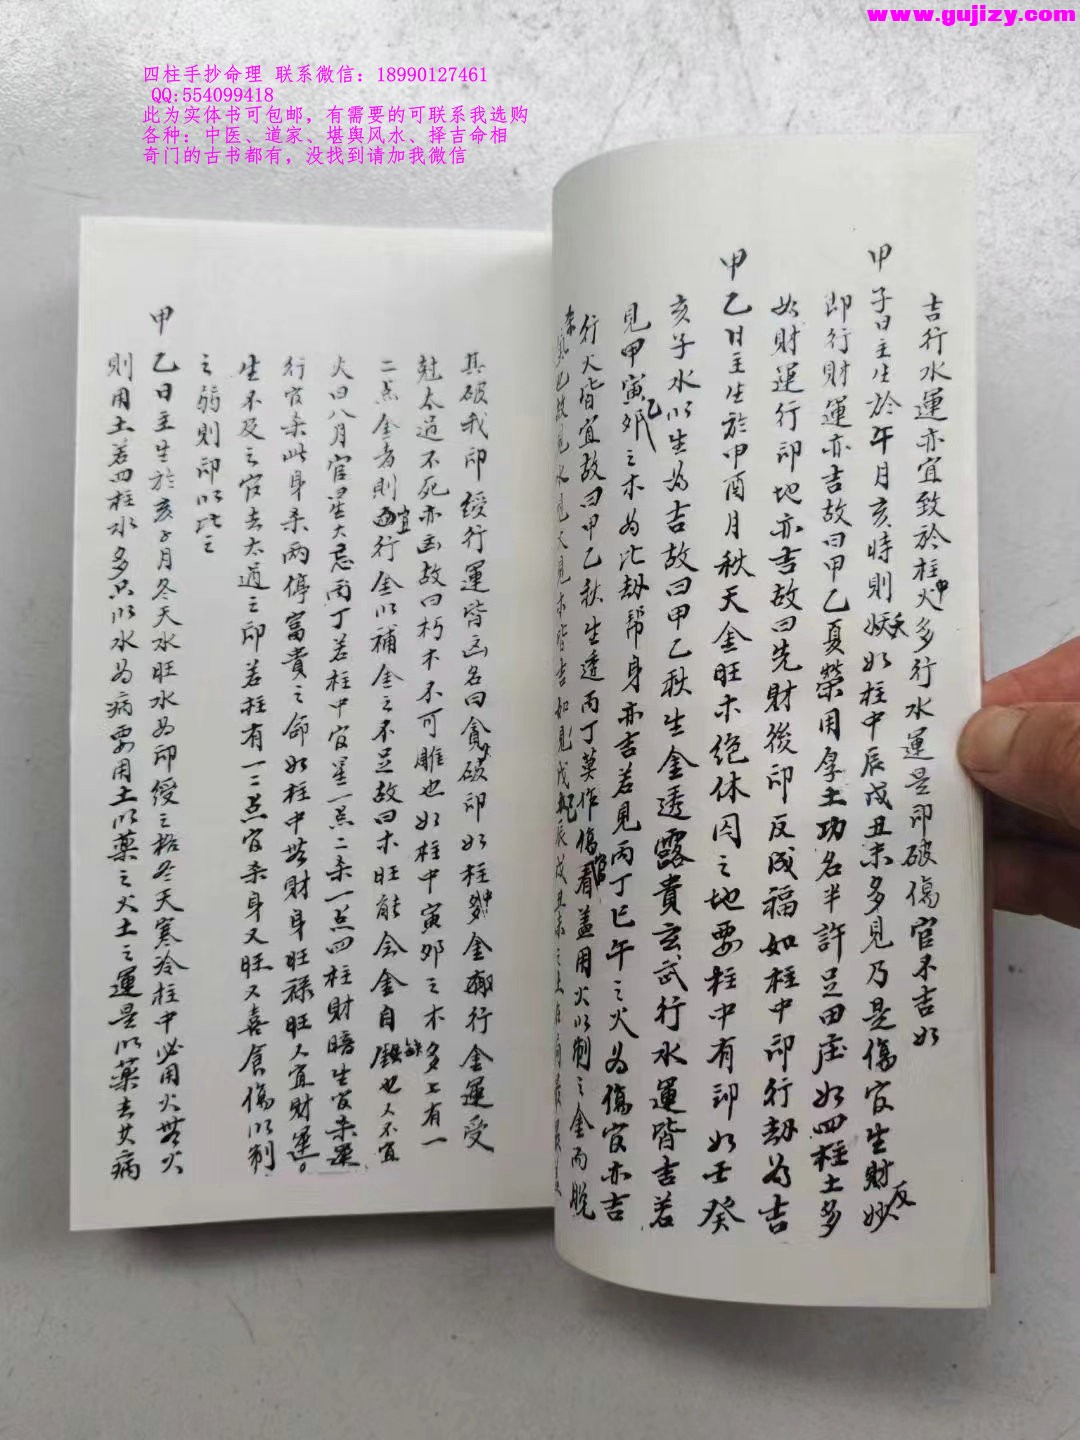 www.gujizy.com
四柱手抄命理 联系微信：18990127461
QQ:554099418
此为实体书可包邮，有需要的可联系我选购
各种：中医、道家、堪舆风水、择吉命相
奇门的古书都有，没找到请加我微信
吉行水運亦宜致於柱中火多行水運是印破傷官不吉如
甲子日主生於午月亥時則妖夭如柱中辰戌丑未多見乃是傷官生財妙反
即行財運亦吉故曰甲乙夏榮用厚土功名半許足田庄如四柱土多
如財運行印地亦吉故曰先財後印反成福如柱中印行劫為吉
甲乙日主生於甲酉月秋天金旺木絕休囚之地要柱中有印如壬癸
亥子水以生為吉故曰甲乙秋生金透露貴玄武行水運皆吉若
見甲寅夘乙之木為比劫幫身亦吉若見丙丁巳午之火為傷官亦吉
行火皆宜故曰甲乙秋生透丙丁莫作傷官看盖用火以制之金而脫
故見水見火見木皆吉如見戊己辰戌丑未之土
其破我印綬行運皆凶名曰貪破印如柱中多金趣行金運受
尅太過不死亦凶故曰朽木不可雕也如柱中寅夘之木多上有一
二点金者則宜西行金以補金之不足故曰木旺能金金自缺也人不宜
火曰八月官星大忌丙丁若柱中官星一点二杀一点四柱財暗生官杀運
行官杀此身杀兩停富貴之命如柱中無財身旺禄旺人宜財運。
生不及之官去太過之印若柱有一二点官杀身又旺又喜食傷以制
之弱則印以比之
甲乙日主生於亥子月冬天水旺水為印綬之格冬天寒冷柱中必用火無火
則用土若四柱水多只以水為病要用土以藥之火土之運是以藥去其病